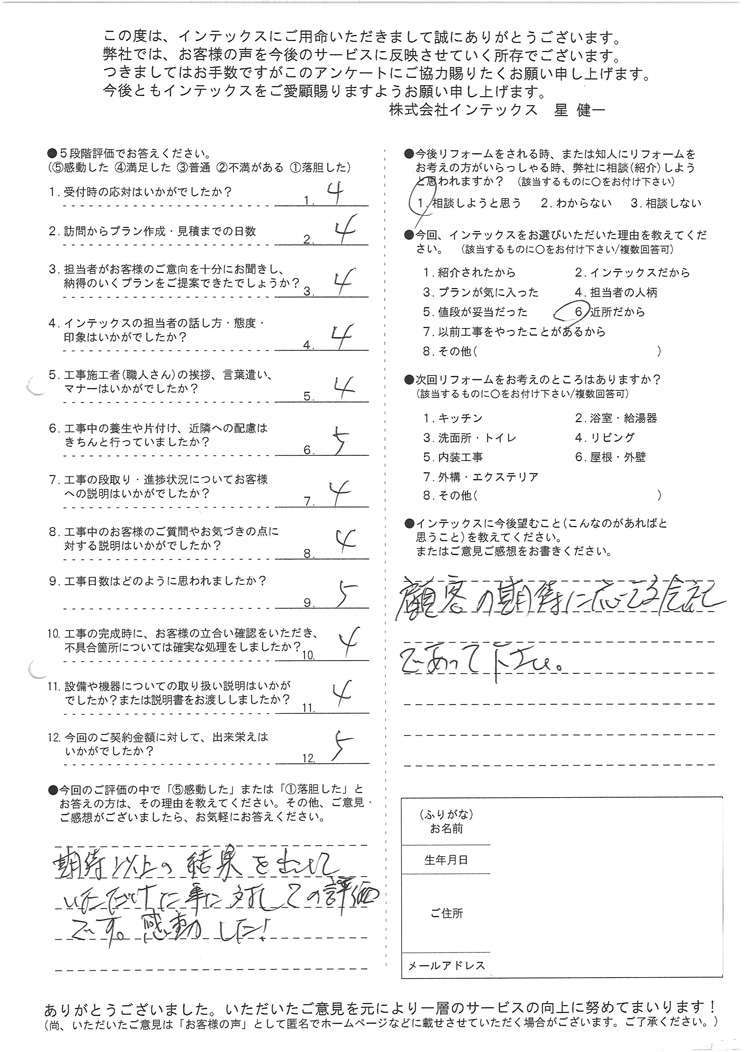 この度は、インテックスにご用命いただきまして誠にありがとうございます。
弊社では、お客様の声を今後のサービスに反映させていく所存でございます。
つきましてはお手数ですがこのアンケートにご協力賜りたくお願い申し上げます。
今後ともインテックスをご愛顧賜りますようお願い申し上げます。
株式会社インテックス 星 健一
●5段階評価でお答えください。
(⑤感動した ④満足した ③普通 ②不満がある ①落胆した)
1. 受付時の応対はいかがでしたか?
1. 4
2. 訪問からプラン作成・見積までの日数
2. 4
3. 担当者がお客様のご意向を十分にお聞きし、
納得のいくプランをご提案できたでしょうか?
3. 4
4. インテックスの担当者の話し方・態度・
印象はいかがでしたか?
4. 4
5. 工事施工者(職人さん)の挨拶、言葉遣い、
マナーはいかがでしたか?
5. 4
6. 工事中の養生や片付け、近隣への配慮は
きちんと行っていましたか?
6. 5
7. 工事の段取り・進捗状況についてお客様
への説明はいかがでしたか?
7. 4
8. 工事中のお客様のご質問やお気づきの点に
対する説明はいかがでしたか?
8. 4
9. 工事日数はどのように思われましたか?
9. 5
10. 工事の完成時に、お客様の立合い確認をいただき、
不具合箇所については確実な処理をしましたか?
10. 4
11. 設備や機器についての取り扱い説明はいかが
でしたか?または説明書をお渡ししましたか?
11. 4
12. 今回のご契約金額に対して、出来栄えは
いかがでしたか?
12. 5
●今回のご評価の中で「⑤感動した」または「①落胆した」と
お答えの方は、その理由を教えてください。その他、ご意見・
ご感想がございましたら、お気軽にお答えください。
期待以上の結果を出して
いただけた事に対しての評価
です。感動した!
●今後リフォームをされる時、または知人にリフォームを
お考えの方がいらっしゃる時、弊社に相談(紹介)しよう
と思われますか? (該当するものに○をお付け下さい)
1. 相談しようと思う 2. わからない 3. 相談しない
●今回、インテックスをお選びいただいた理由を教えてくだ
さい。 (該当するものに○をお付け下さい/複数回答可)
1. 紹介されたから 2. インテックスだから
3. プランが気に入った 4. 担当者の人柄
5. 値段が妥当だった 6. 近所だから
7. 以前工事をやったことがあるから
8. その他( )
●次回リフォームをお考えのところはありますか?
(該当するものに○をお付け下さい/複数回答可)
1. キッチン 2. 浴室・給湯器
3. 洗面所・トイレ 4. リビング
5. 内装工事 6. 屋根・外壁
7. 外構・エクステリア
8. その他( )
●インテックスに今後望むこと(こんなのがあればと
思うこと)を教えてください。
またはご意見ご感想をお書きください。
顧客の期待に応える会社
であって下さい。
(ふりがな)
お名前
生年月日
ご住所
メールアドレス
ありがとうございました。いただいたご意見を元により一層のサービスの向上に努めてまいります!
(尚、いただいたご意見は「お客様の声」として匿名でホームページなどに載せさせていただく場合がございます。ご了承ください。)